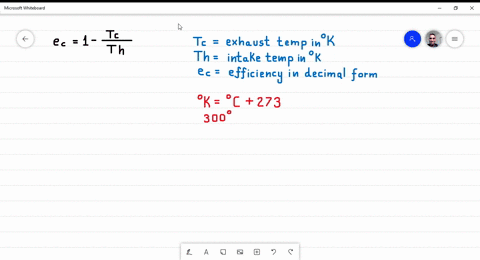 Microsoft Whiteboard
e_c = 1 - Tc/Th
Tc = exhaust temp in °K
Th = intake temp in °K
e_c = efficiency in decimal form
°K = °C + 273
300°